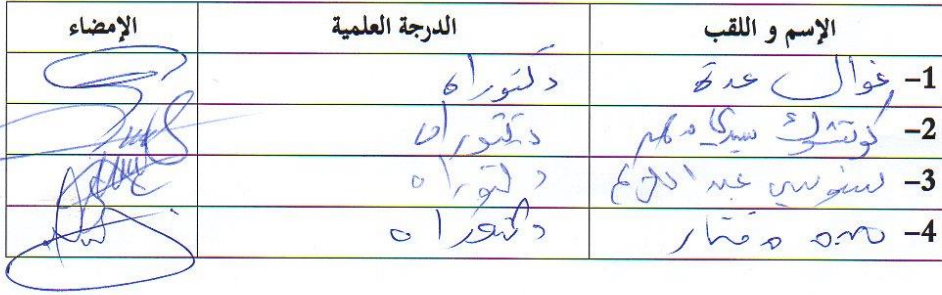 الإسم و اللقب الدرجة العلمية الإمضاء
1- غوال عدة دكتوراه
2- كوتشوك سيدي محمد دكتوراه
3- سنوسي عبد الكريم دكتوراه
4- مختار دكتوراه